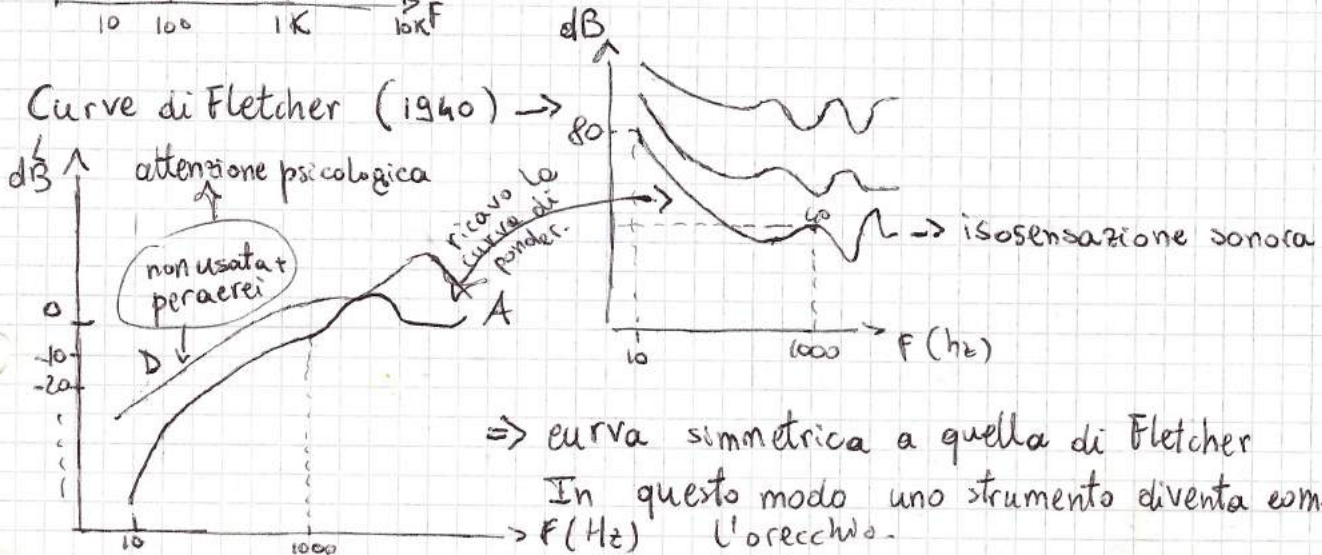 10 100 1K 10K F
Curve di Fletcher (1940) →
dB
80
40
→ isosensazione sonora
10 1000 F (hz)
dB
attenzione psicologica
non usata +
per aerei
ricavo la
curva di
ponder.
D
A
0
-10
-20
10 1000 F (Hz)
=> curva simmetrica a quella di Fletcher
In questo modo uno strumento diventa com
l'orecchio.